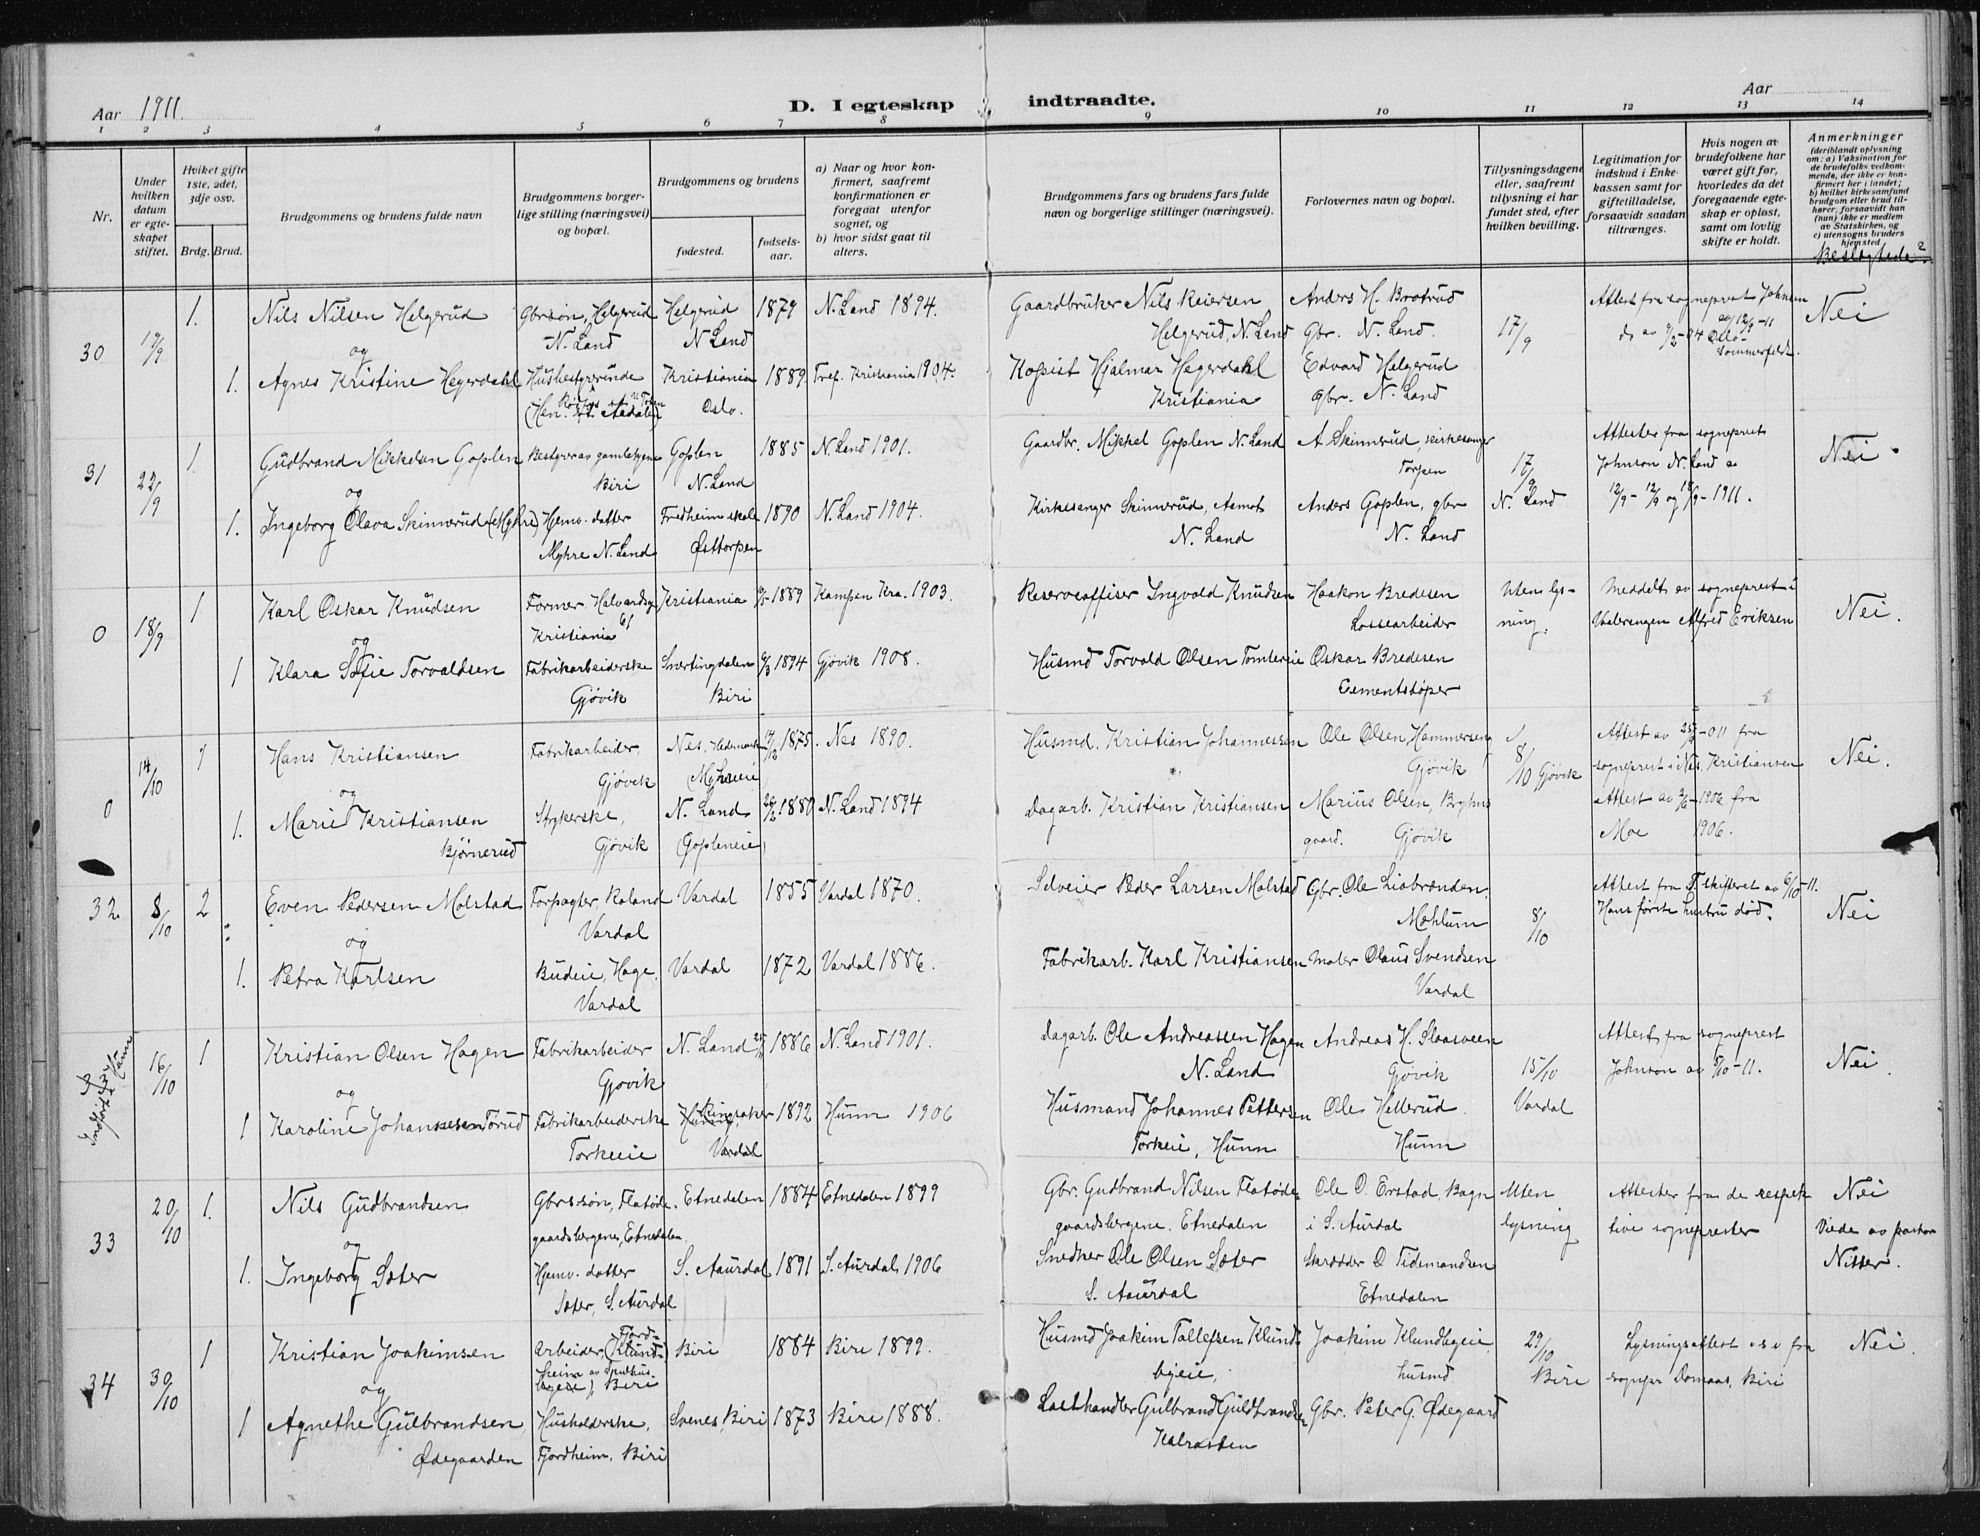 Aar 1911.
D. I egteskap indtraadte.
Aar
1 2 3 4 5 6 7 8 9 10 11 12 13 14
Nr.
Under hvilken datum er egteskapet stiftet.
Hvilket gifte 1ste, 2det, 3dje osv.
Brdg. Brud.
Brudgommens og brudens fulde navn
Brudgommens borgerlige stilling (næringsvei) og bopæl.
Brudgommens og brudens
fødested.
fødselsaar.
a) Naar og hvor konfirmert, saafremt konfirmationen er foregaat utenfor sognet, og
b) hvor sidst gaat til alters.
Brudgommens fars og brudens fars fulde navn og borgerlige stillinger (næringsvei).
Forlovernes navn og bopæl.
Tillysningsdagene eller, saafremt tillysning ei har fundet sted, efter hvilken bevilling.
Legitimation for indskud i Enkekassen samt for giftetilladelse, forsaavidt saadan tiltrænges.
Hvis nogen av brudefolkene har været gift før, hvorledes da det foregaaende egteskap er opløst, samt om lovlig skifte er holdt.
Anmerkninger (deriblandt oplysning om: a) Vaksination for de brudefolks vedkommende, der ikke er konfirmert her i landet; b) hvilket kirkesamfund brudgom eller brud tilhører, forsaavidt han (hun) ikke er medlem av Statskirken, og c) utensogns bruders hjemsted
Beslegtede?
30 19/9 1. Nils Nilsen Helgerud Gbrsøn, Helgerud Helgerud 1879 N. Land 1894. Gaardbruker Nils Reiersen Anders H. Brotrud Attest fra sogneprest Johnsen Nei
N. Land N. Land Helgerud, N. Land Gbr. N. Land. 17/9
og Sommerfeldt.
1. Agnes Kristine Heyerdahl Husbestyrerinde Kristiania 1889. Kristiania 1904. Kopist Hjalmar Hagerdahl Edvard Helgerud
Oslo. Kristiania gbr. N. Land
31 22/9 1. Gudbrand Mikkelsen Goplen Bestyrer av gamlehjem Goplen 1885 N. Land 1901. Gaardbr. Mikkel Goplen N. Land A Skinnerud, kirkesanger Attester fra sogneprest Nei.
Biri N. Land Torpen 17/9 Johnson N. Land
og
1. Ingeborg Olava Skinnerud (Myhre) Hjemv. datter Fredheim skole 1890 N. Land 1904. Kirkesanger Skinnerud, Aamot Anders Goplen, gbr N. Land 12/9 - 12/9 og 18/9 - 1911.
Myhre N. Land Østtorpen N. Land N. Land
0 18/9 1 Karl Oskar Knudsen Former. Halvardsg Kristiania 1889 Kampen Kra. 1903. Reserveoffiser Ingvald Knudsen Haakon Bredesen Uten lys- Meddelt av sogneprest i Nei.
61 Kristiania Lossearbeider ning. Vaalerengen Alfred Eriksen
og
1 Klara Sofie Torvaldsen Fabrikarbeiderske Snertingdalen 1894 Gjøvik 1908. Husmd Torvald Olsen Tomlereie Oskar Bredesen
Gjøvik Biri Cementstøper
0 14/10 1 Hans Kristiansen Fabrikarbeider, Nes, Hedemarken 1875. Nes 1890. Husmd. Kristian Johannessen Ole Olsen, Hammerseng Attest av 25/9-011 fra Nei.
Gjøvik Gjøvik 8/10 Gjøvik sogneprest i Nes, Kristiansen
og
1. Marie Kristiansen Strykerske, N. Land 1880 N. Land 1894 Dagarb. Kristian Kristiansen Marius Olsen, Bryhns
Bjørnerud Gjøvik (Gopleneie) gaard. Gjøvik Moe 1906.
32 8/10 2 Even Pedersen Molstad Forpagter, Roland Vardal 1855 Vardal 1870. Selveier Peder Larsen Molstad Gbr. Ole Liabrenden, Attest fra skifteret av 6/10-11. Nei
Vardal Mæhlum 8/10 Hans første hustru død.
og
1. Petra Karlsen Budeie, Hage, Vardal 1872 Vardal 1886. Fabrikarb. Karl Kristiansen Maler Olaus Svendsen
Vardal Vardal
Indført i Hunn
16/10 1 Kristian Olsen Hagen Fabrikarbeider N. Land 1886 N. Land 1901. Dagarb. Ole Andreassen Hagen Andreas H. Slaasveen Attest fra sogneprest Nei.
Gjøvik N. Land Gjøvik 15/10 Johnson av 5/10-11.
og Vardal
1 Karoline Johannessen Torud Fabrikarbeiderske Ringsaker 1892 Hunn 1906 Husmand Johannes Pettersen Ole Hillerud.
Torkeie Vardal Torkeie, Hunn Hunn
33 20/10 1. Nils Gudbrandsen Gbrssøn, Flatøde- Etnedalen 1884 Etnedalen 1899 Gbr. Gudbrand Nilsen Flatøde- Ole O. Erstad, Bagn Uten Attester fra de respek- Nei
gaardsbergene, Etnedalen. gaardsbergene. Etnedalen i S. Aurdal lysning tive sogneprester Viede av pastor
og Nisser.
1. Ingeborg Sæter Hjemv. datter S. Aaurdal 1891 S. Aurdal, 1906 Snedker Ole Olsen Sæter Skrædder O Tidemandsen
Sæter, S. Aurdal S. Aaurdal Etnedalen
34 30/10 1 Kristian Joakimsen Arbeider, Biri 1884 Biri 1899. Husmd Joakim Tollefsen Klunds- Joakim Klundbyeie 29/10 Lysningsattest fra Nei.
Biri byeie, husmd. Biri sognepr Domaas, Biri
og
1 Agnethe Gulbrandsen Husholderske, Svenes, Biri 1873 Biri 1888. Lasthandler Gulbrand Guldbrandsen Gbr. Peter G. Ødegaard
Ødegaarden Fjordheim, Biri